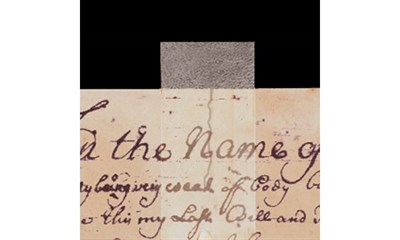 the Name of
being very weak off body
this my Last Will and